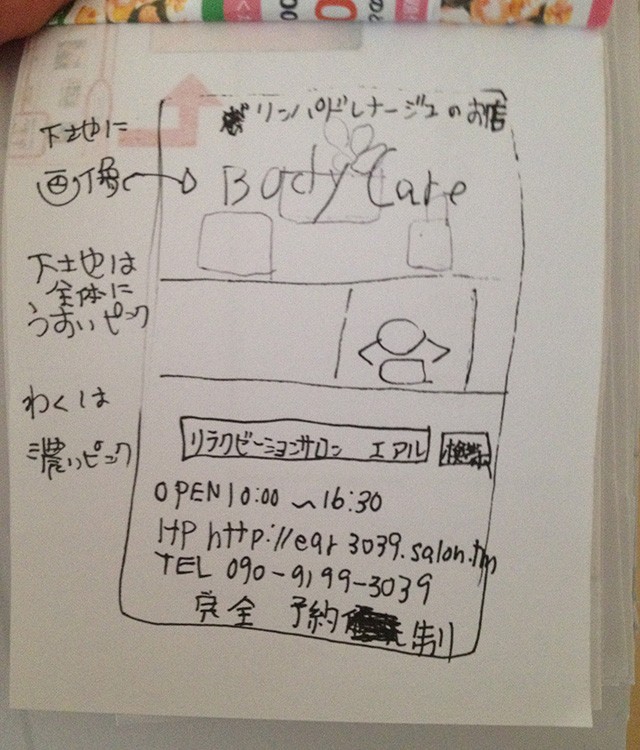 リンパドレナージュのお店
下地に
画像
Body Care
下地は
全体に
うすいピンク
わくは
濃いピンク
リラクゼーションサロン エアル 検索
OPEN 10:00 〜 16:30
HP http://ear3039.salon.tm
TEL 090-9199-3039
完全 予約 制